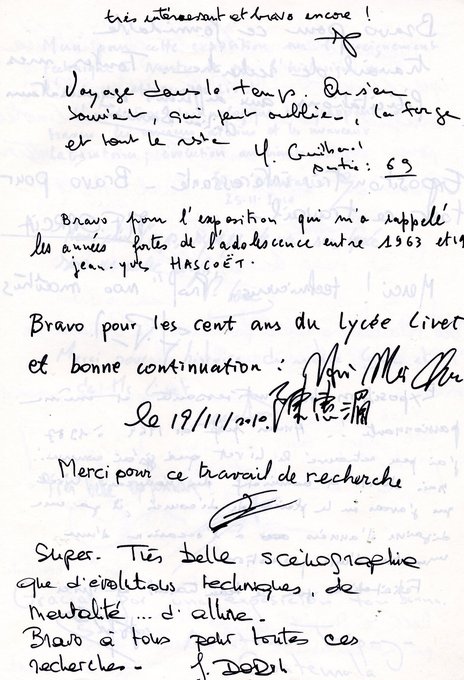 très intéressant et bravo encore !
Voyage dans le temps. On s'en
souvient qui peut oublier, la forge
et tout le reste
Y. Guilhard
sortie : 69
Bravo pour l'exposition qui m'a rappelé
les années fortes de l'adolescence entre 1963 et 19
jean-yves HASCOËT.
Bravo pour les cent ans du Lycée Livet
et bonne continuation :
le 19/11/2010.
Merci pour ce travail de recherche
Super. Très belle scénographie
que d'évolutions techniques, de
mentalité ... d'allure.
Bravo à tous pour toutes ces
recherches -